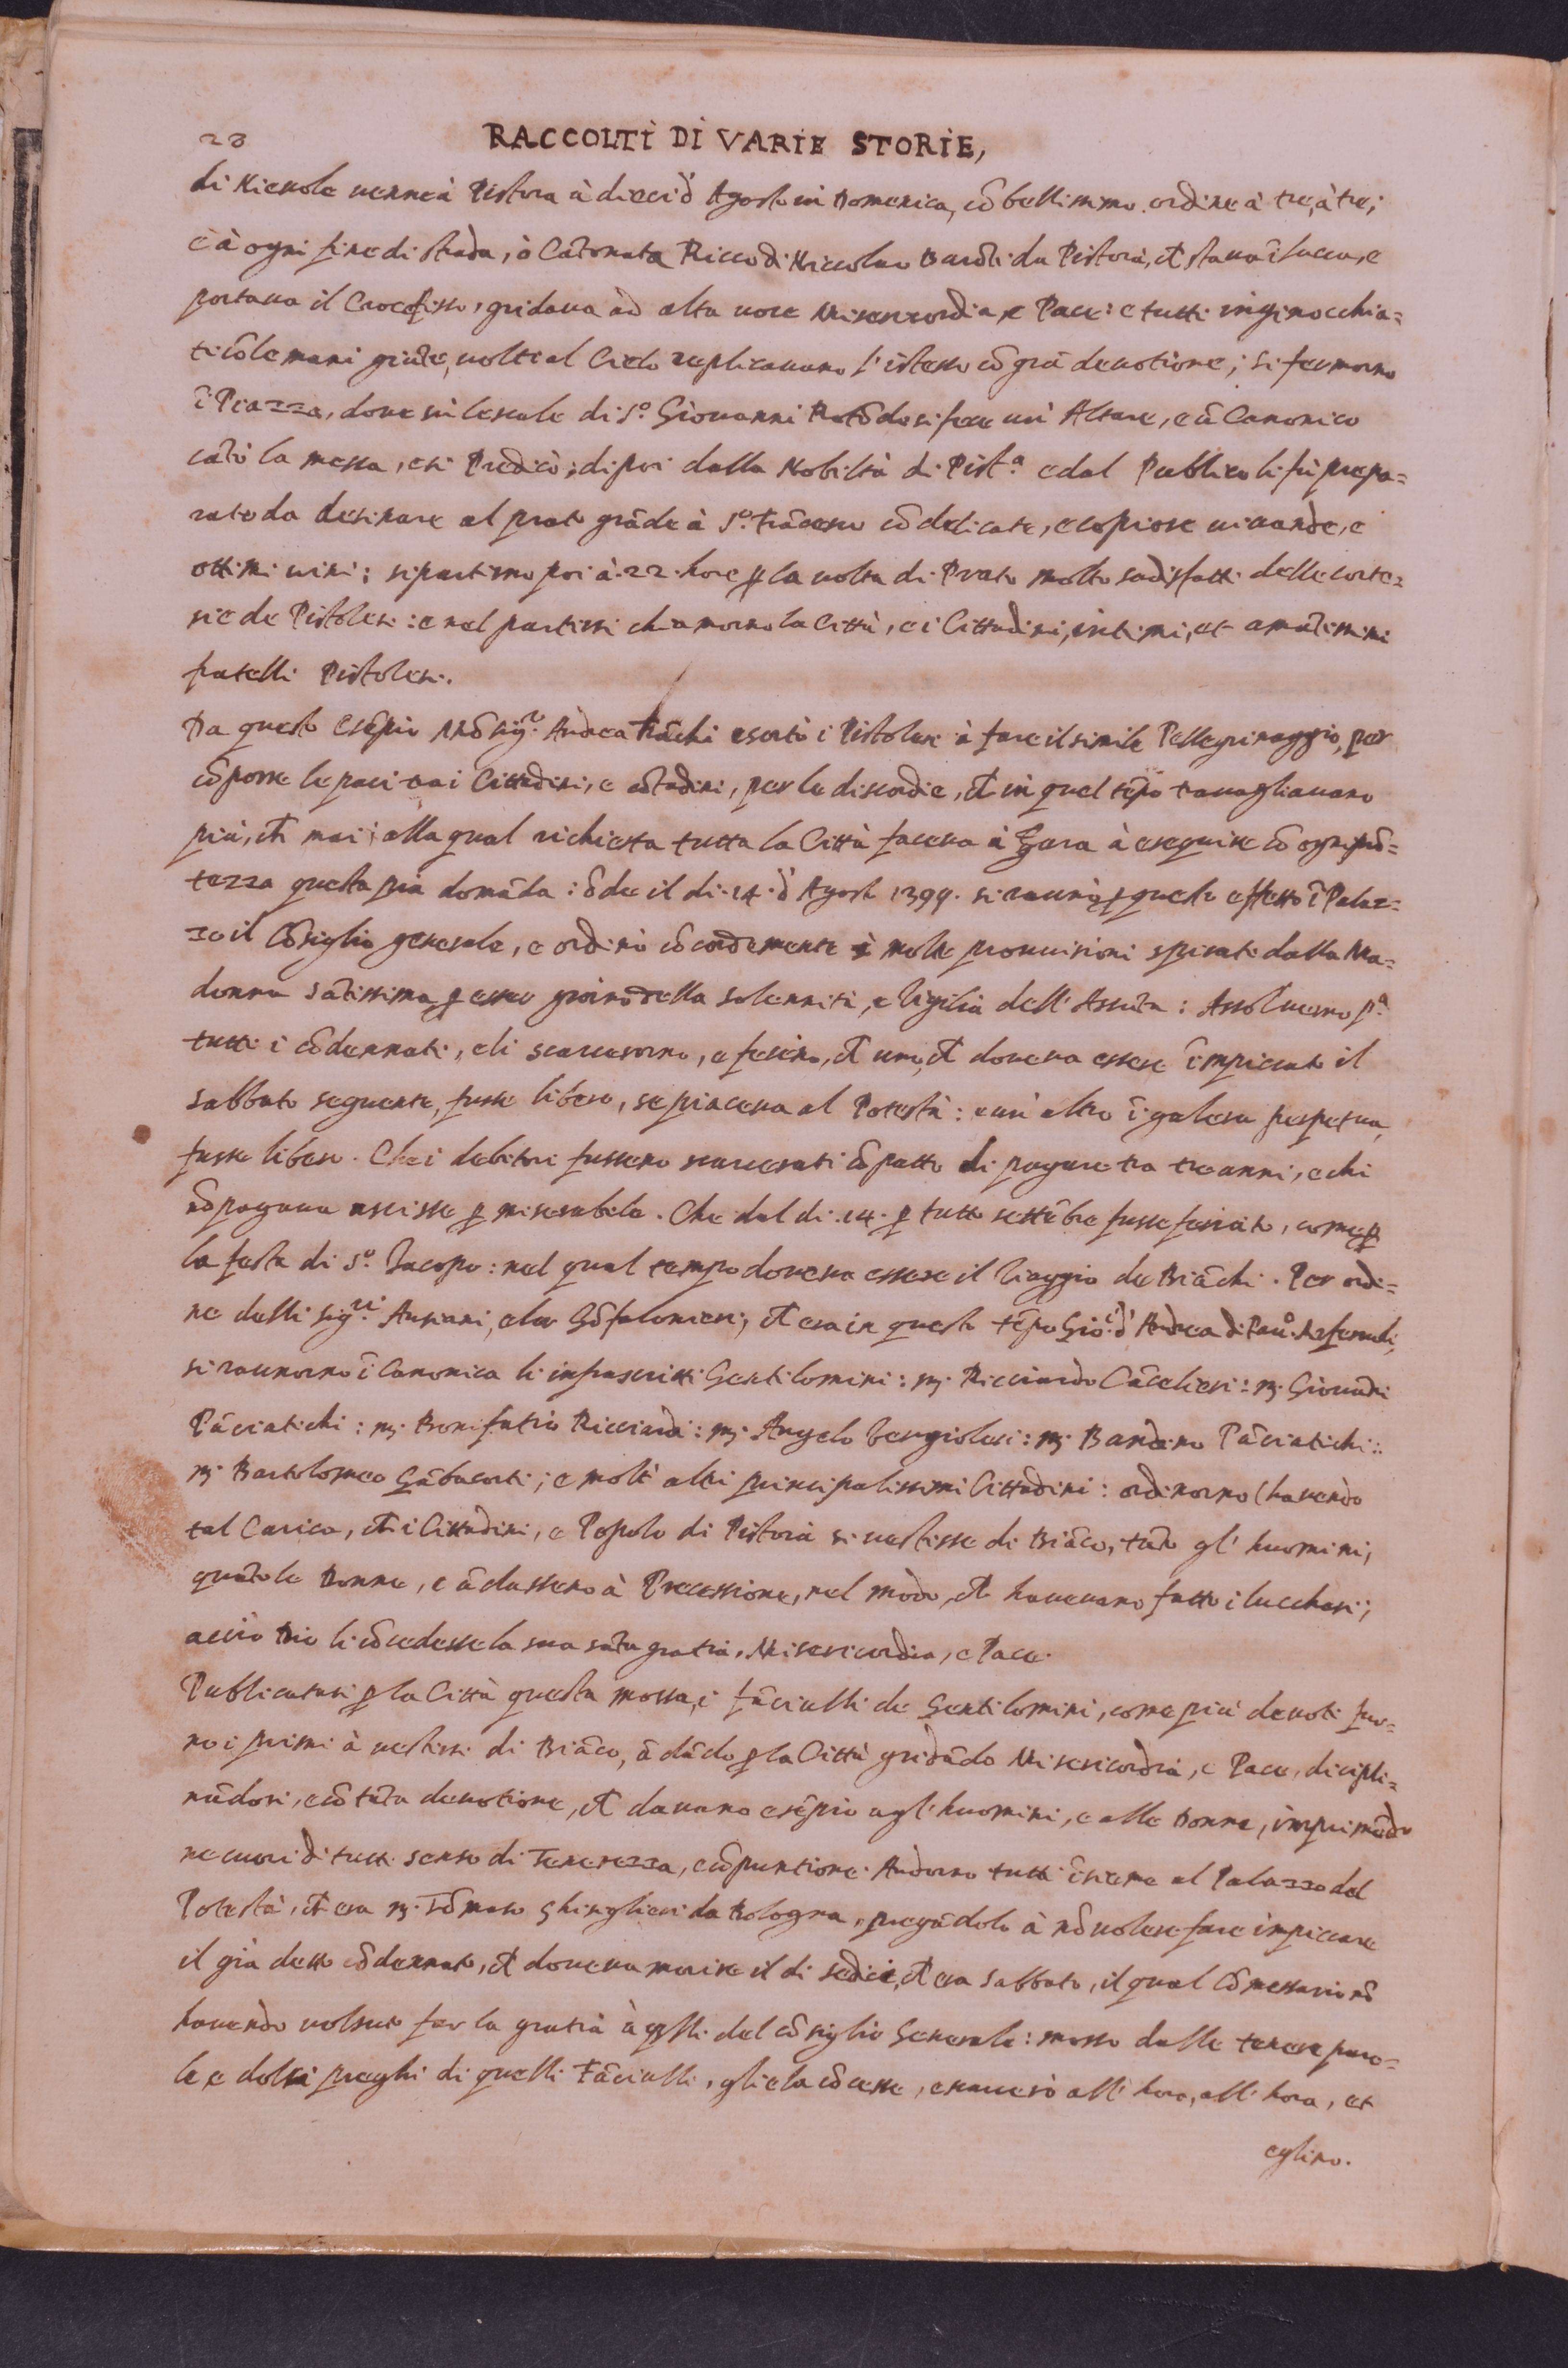 28 RACCOLTI DI VARIE STORIE,
di Nievole venne à Pistoia à dieci d' Agosto in Domenica, cõ bellissimo ordine à tre, à tre;
e à ogni fine di strada, ò Cãtonata Ricco di Niccolao Bardi da Pistoia, ch̃ stava ĩ Lucca, e
portava il Crocefisso, gridava ad alta voce Misericordia, e Pace: e tutti inginocchia=
ti cõ le mani giũte, volti al Cielo replicavano l' istesso cõ grã devotione; si fermorno
ĩ Piazza, dove sù le scale di S.º Giovanni Rotõdo si fece un' Altare, e ũ Canonico
cãtò la messa, e si Predicò; di poi dalla Nobiltà di Pist.ª e dal Publico li fù prepa=
rato da desinare al prato grãde à S.º Frãcesco cõ delicate, e copiose vivande, e
ottimi vini; si partirno poi à .22. hore ꝑ la volta di Prato molto sadisfatti delle corte=
sie de Pistolesi: e nel partirsi chiamorno la Città, e i Cittadini, intimi, et amãtissimi
fratelli Pistolesi.
Da questo esẽpio Mõsig.r Andrea Frãchi esortò i Pistolesi à fare il simile Pellegrinaggio, per
cõporre le paci tra i Cittadini, e cõtadini, per le discordie, ch̃ in quel tẽpo travagliavano
più, ch̃ mai; alla qual richiesta tutta la Città faceva à Gara à eseguire cõ ogni prõ=
tezza questa pia domãda: õde il di .14. d' Agosto 1399. si raunò ꝑ questo effetto ĩ Palaz=
zo il Cõsiglio generale, e ordinò cõcordemente molte provvisioni spirati dalla Ma=
donna Sãtissima ꝑ esser giorno della solennità, e Vigilia dell' Assũta: Assolverno p.ª
tutti i cõdennati, e li scarcerorno, e fecino, ch̃ uno, ch̃ doveva essere ĩmpiccato il
sabbato seguente, fusse libero, se piaceva al Potestà: e un' altro ĩ galera perpetua,
fusse libero. Che i debitori fussero scarcerati cõ patto di pagare tra tre anni, e chi
nõ pagava uscisse ꝑ miserabile. Che dal di .14. ꝑ tutto settẽbre fusse feriato, come ꝑ
la festa di S.º Iacopo: nel qual tempo doveva essere il Viaggio de Biãchi. Per ordi=
ne delli sig.ri Antiani, e lor Gõfalonieri, ch̃ era in questo tẽpo Gio: d' Andrea di Pau.º
si raunorno ĩ Canonica li infrascritti Gentilomini: m̃. Ricciardo Cãcelieri: m̃. Giovãni
Pãciatichi: m̃. Bonifatio Ricciardi: m̃. Angelo Vergiolesi: m̃. Bandino Pãciatichi:
m̃. Bartolomeo Gãbacorti; e molti altri principalissimi Cittadini: ordinorno (havendo
tal Carica, ch̃ i Cittadini, e Popolo di Pistoia si vestisse di Biãco, tãto gl' huomini,
quãto le Donne, e ãdassero à Processione, nel modo, ch̃ havevano fatto i Lucchesi;
acciò Dio li cõcedesse la sua sãta gratia, Misericordia, e Pace.
Publicatasi ꝑ la Città questa mossa, i fãciulli de Gentilomini, come più devoti fur=
no i primi à vestirsi di Biãco, ãdãdo ꝑ la Città gridãdo Misericordia, e Pace, discipli=
nãdosi, e cõ tãta devotione, ch̃ davano esẽpio agl' huomini, e alle Donne, imprimẽdo
ne cuori di tutti senso di Tenerezza, e cõpuntione. Andorno tutti ĩsieme al Palazzo del
Potestà, ch̃ era m̃. Tõmaso Ghisglieri da Bologna, pregãdolo à nõ volere fare impiccare
il già detto cõdennato, ch̃ doveva morire il di sedici, ch̃ era sabbato, il qual Cõmessario nõ
havendo volsuto far la gratia à q̃lli del cõsiglio Generale: mosso dalle tenere paro=
le e dolci preghi di quelli Fãciulli, gliela cõcesse, e scarcerò all' hora, all' hora, et
eglino.